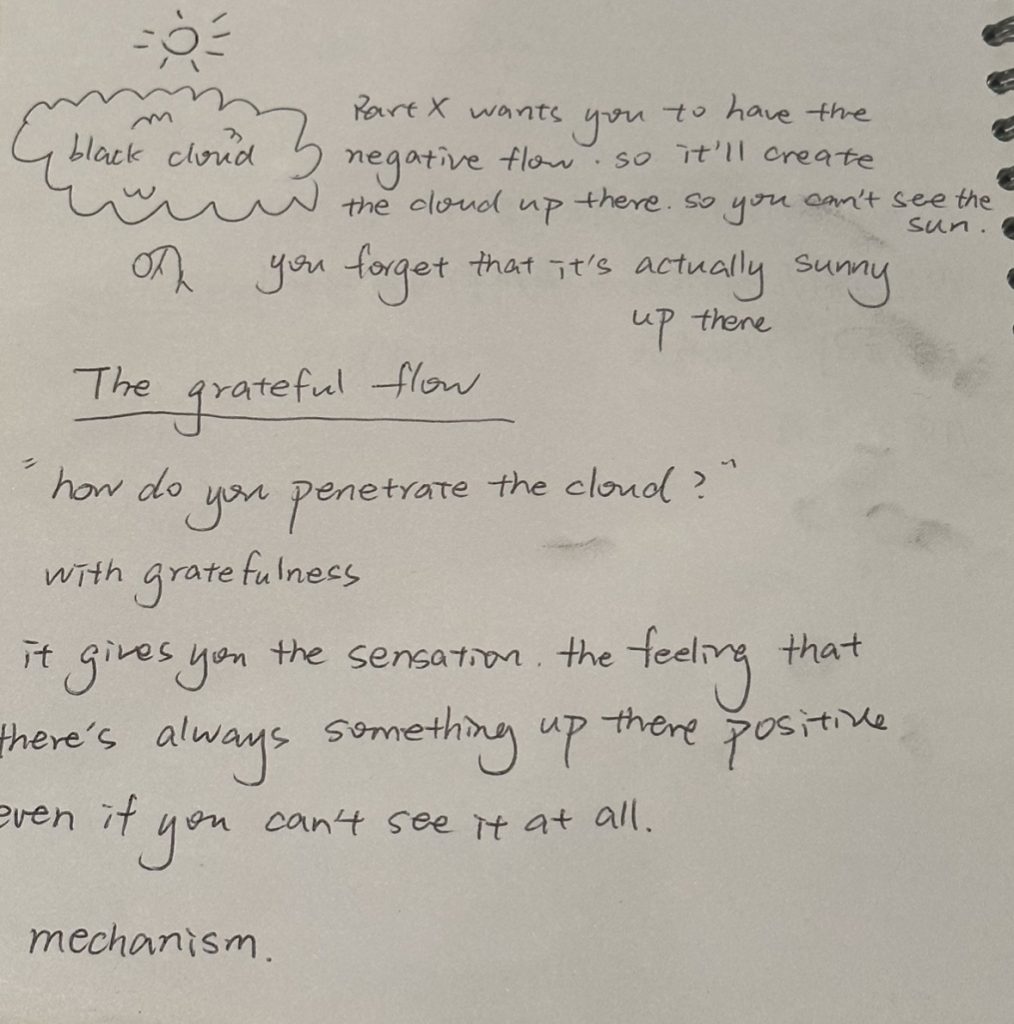 black cloud
Part X wants you to have the
negative flow. so it'll create
the cloud up there. so you can't see the
sun.
you forget that it's actually sunny
up there
The grateful flow
"how do you penetrate the cloud?"
with gratefulness
it gives you the sensation. the feeling that
there's always something up there positive
even if you can't see it at all.
mechanism.